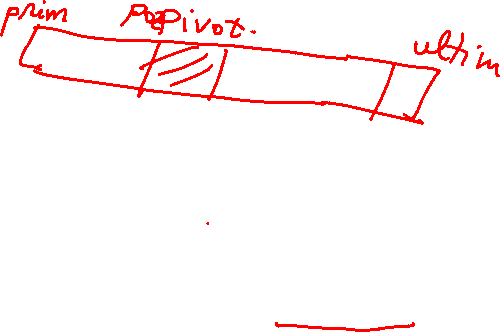 prim
pozPivot.
ultim